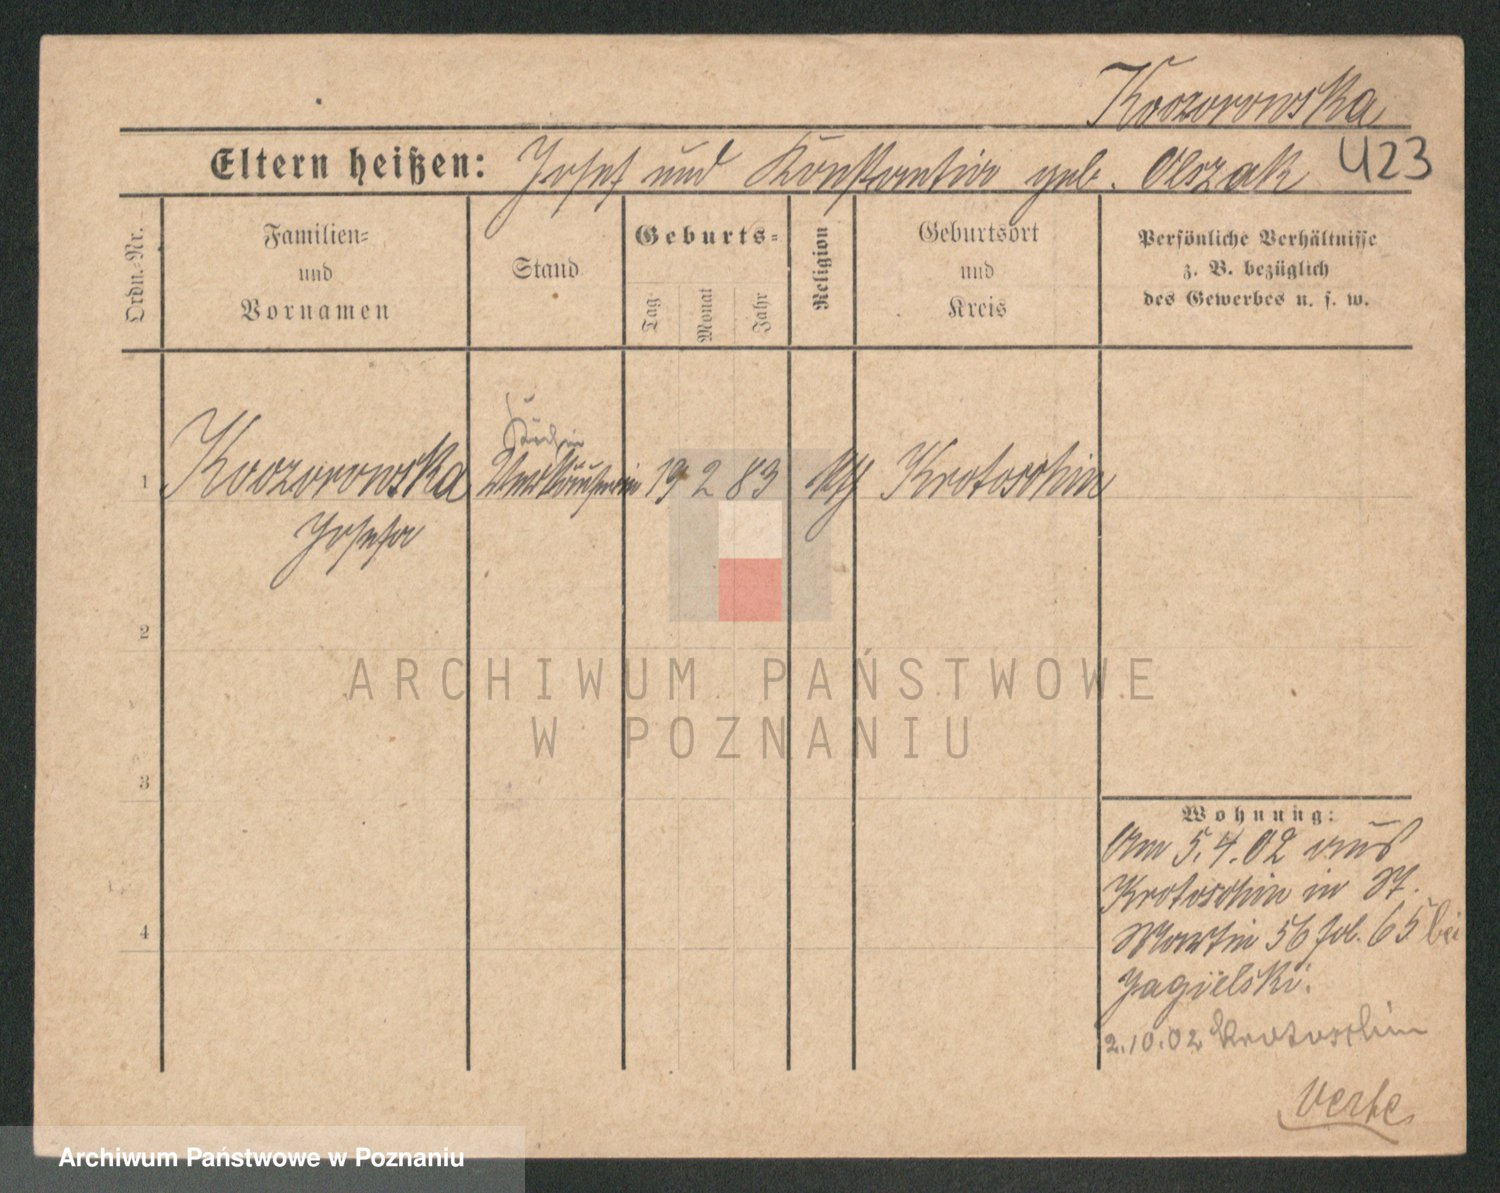 Koczorowska
Eltern heißen: Josef und Konstantia geb. Olszak 423
Ordn.-Nr.
Familien-
und
Vornamen
Stand
Geburts-
Tag
Monat
Jahr
Religion
Geburtsort
und
Kreis
Persönliche Verhältnisse
z. B. bezüglich
des Gewerbes u. s. w.
Köchin
1 Koczorowska Verkäuferin 19 2 83 kth Krotoschin
Josefa
2
3
4
Wohnung:
Am 5.4.02 aus
Krotoschin in St.
Martin 56 fol. 65 bei
Jagielski.
2.10.02 Krotoschin
ARCHIWUM PAŃSTWOWE
W POZNANIU
Archiwum Państwowe w Poznaniu